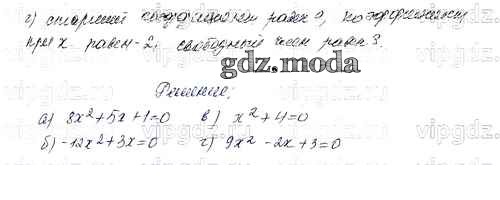 г) старший коэффициент равен 9, коэффициент
при x равен -2, свободный член равен 3.
gdz.moda
Решение:
а) 8x²+5x+1=0 в) x²+4=0
б) -12x²+3x=0 г) 9x²-2x+3=0